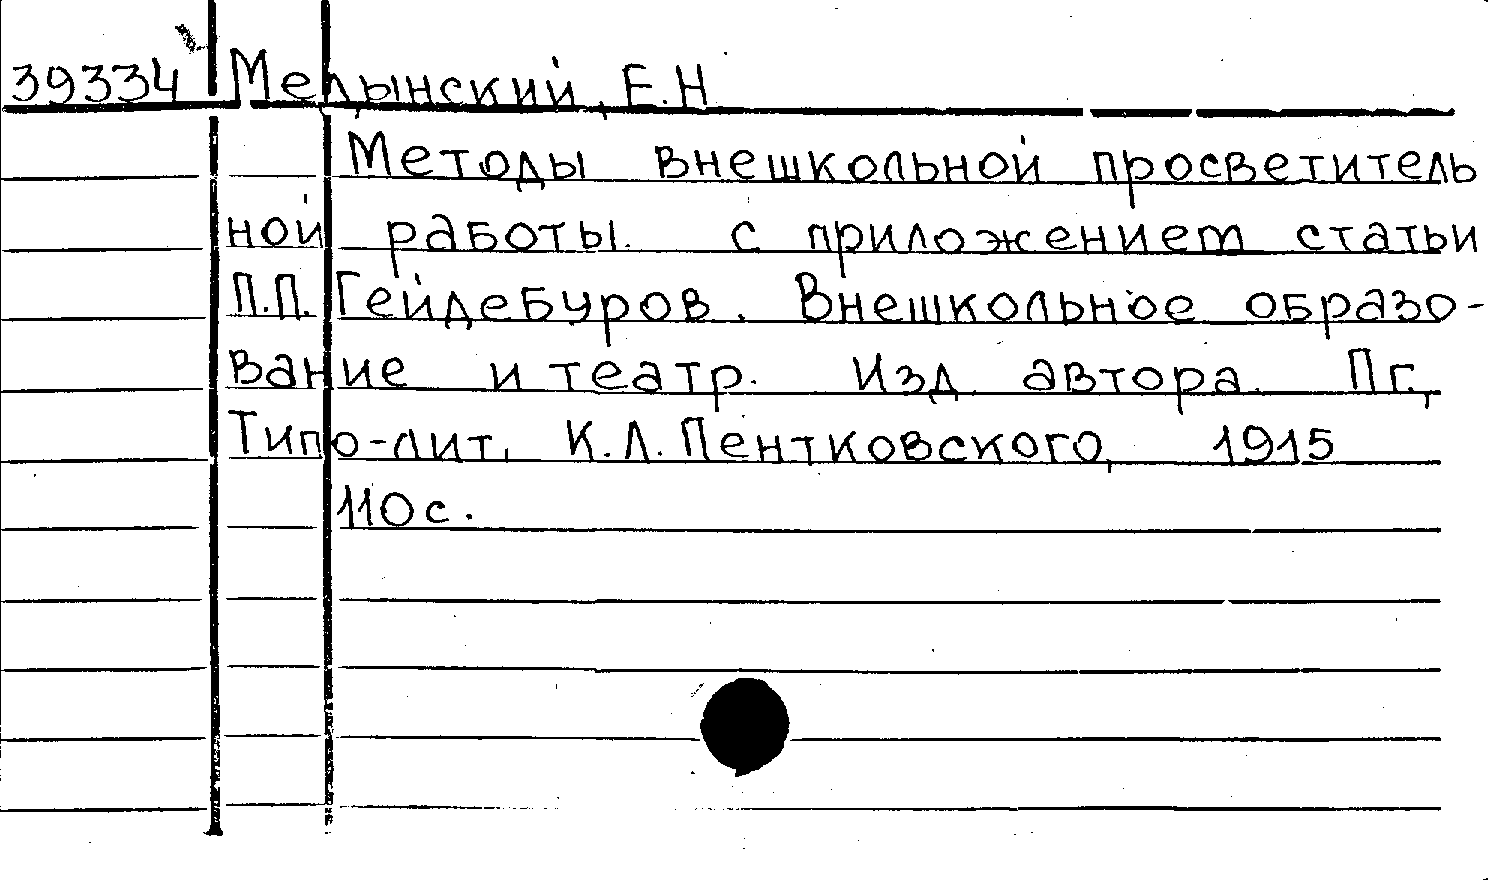 39334 Медынский, Е.Н
Методы внешкольной просветитель
ной работы. с приложением статьи
П.П. Гейдебуров. Внешкольное образо-
вание и театр. Изд. автора. Пг.,
Типо-лит. К.Л. Пентковского, 1915
110 с.